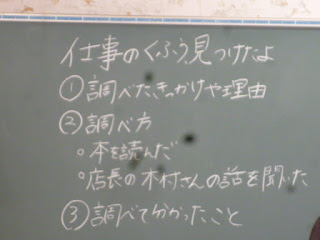 仕事のくふう見つけたよ
①調べたきっかけや理由
②調べ方
○本を読んだ
○店長の木村さんの話を聞いた
③調べて分かったこと